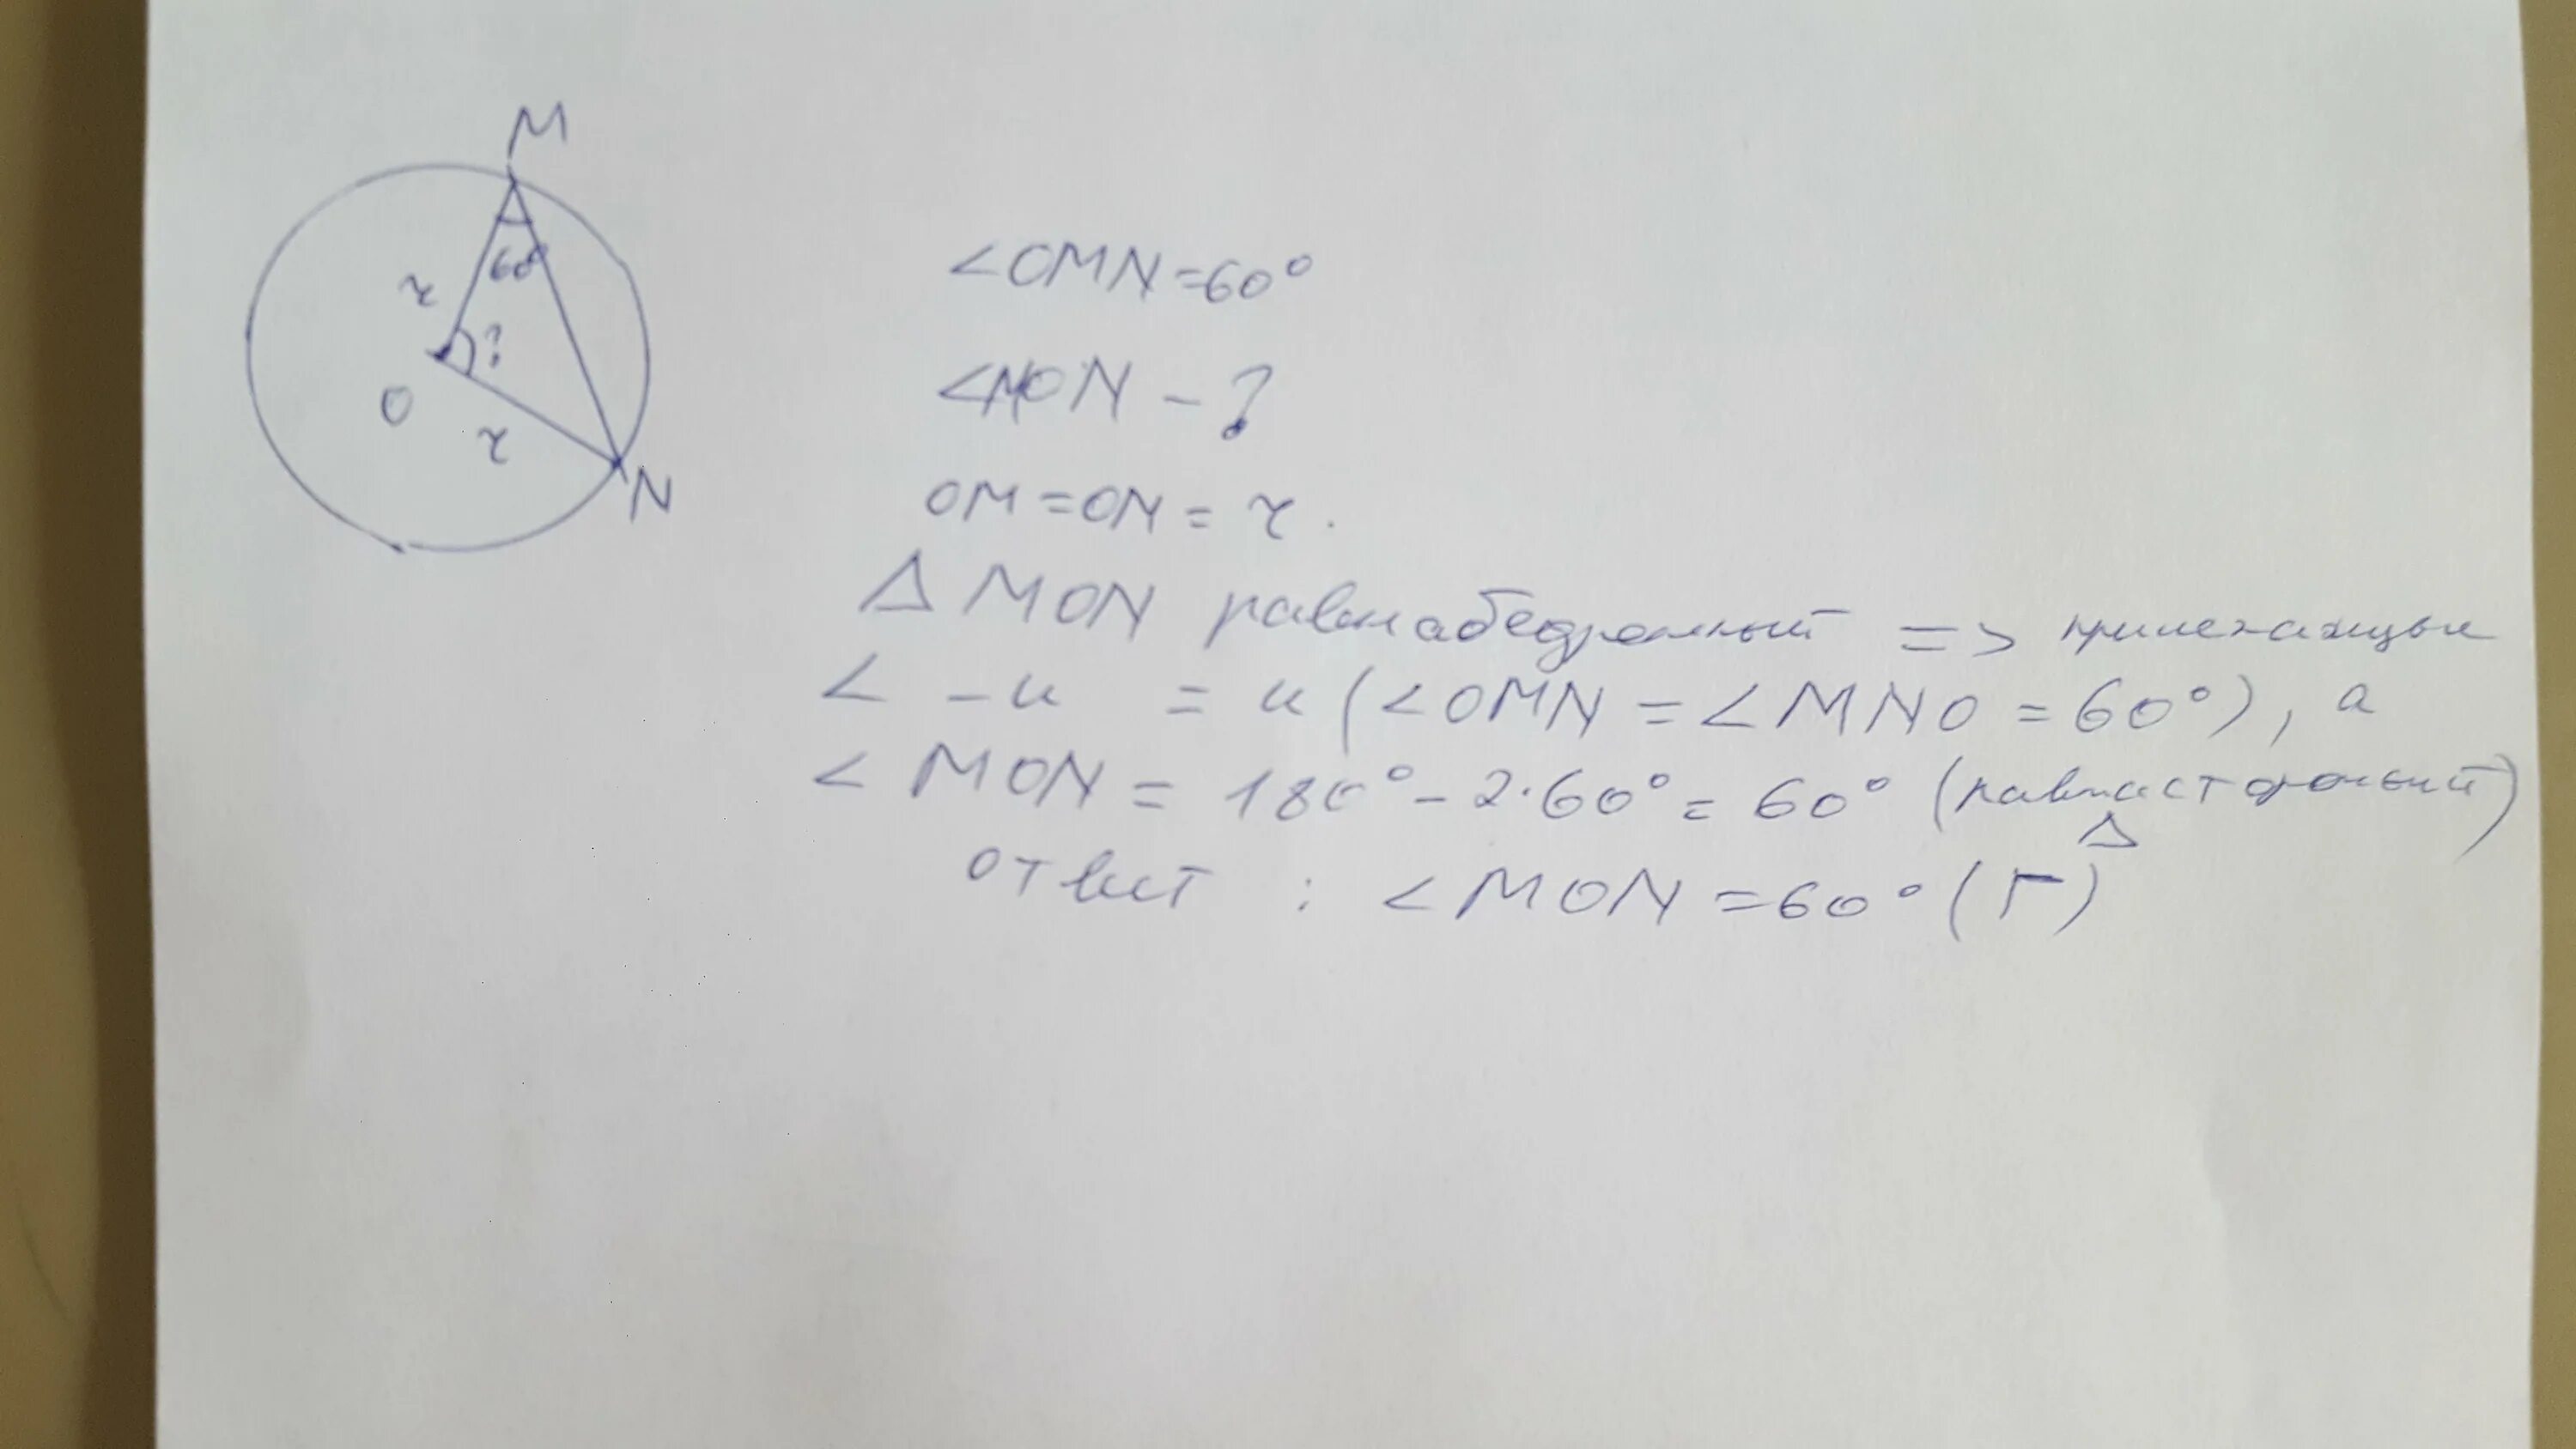 M
60°
r
?
O
r
N
∠OMN=60°
∠MON - ?
OM=ON= r.
Δ MON равнобедренный => прилежащые
∠ -и = и (∠OMN = ∠MNO = 60°), а
∠ MON = 180° - 2·60° = 60° (равностороный)
Δ
ответ : ∠MON =60° (Г)